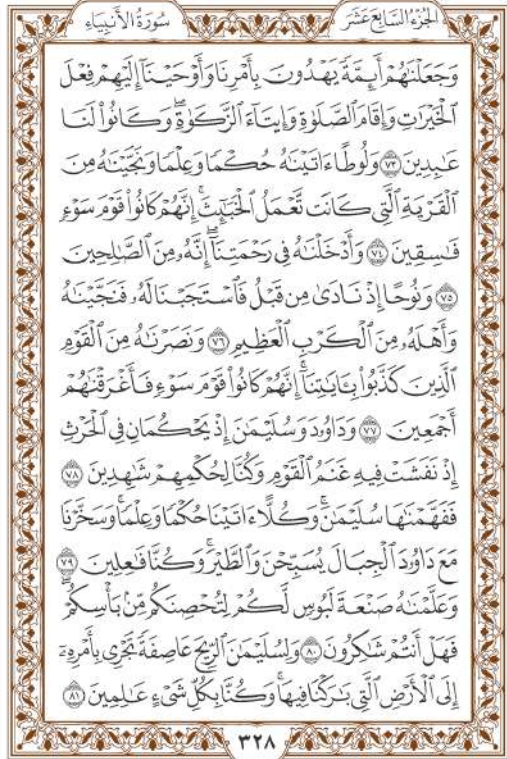 الجُزْءُ السَّابِعَ عَشَرَ سُورَةُ الأَنْبِيَاءِ
وَجَعَلْنَٰهُمْ أَئِمَّةً يَهْدُونَ بِأَمْرِنَا وَأَوْحَيْنَآ إِلَيْهِمْ فِعْلَ
ٱلْخَيْرَٰتِ وَإِقَامَ ٱلصَّلَوٰةِ وَإِيتَآءَ ٱلزَّكَوٰةِۖ وَكَانُوا۟ لَنَا
عَٰبِدِينَ ٧٣ وَلُوطًا ءَاتَيْنَٰهُ حُكْمًا وَعِلْمًا وَنَجَّيْنَٰهُ مِنَ
ٱلْقَرْيَةِ ٱلَّتِى كَانَت تَّعْمَلُ ٱلْخَبَٰٓئِثَۚ إِنَّهُمْ كَانُوا۟ قَوْمَ سَوْءٍ
فَٰسِقِينَ ٧٤ وَأَدْخَلْنَٰهُ فِى رَحْمَتِنَآۖ إِنَّهُۥ مِنَ ٱلصَّٰلِحِينَ
٧٥ وَنُوحًا إِذْ نَادَىٰ مِن قَبْلُ فَٱسْتَجَبْنَا لَهُۥ فَنَجَّيْنَٰهُ
وَأَهْلَهُۥ مِنَ ٱلْكَرْبِ ٱلْعَظِيمِ ٧٦ وَنَصَرْنَٰهُ مِنَ ٱلْقَوْمِ
ٱلَّذِينَ كَذَّبُوا۟ بِـَٔايَٰتِنَآۚ إِنَّهُمْ كَانُوا۟ قَوْمَ سَوْءٍ فَأَغْرَقْنَٰهُمْ
أَجْمَعِينَ ٧٧ وَدَاوُۥدَ وَسُلَيْمَٰنَ إِذْ يَحْكُمَانِ فِى ٱلْحَرْثِ
إِذْ نَفَشَتْ فِيهِ غَنَمُ ٱلْقَوْمِ وَكُنَّا لِحُكْمِهِمْ شَٰهِدِينَ ٧٨
فَفَهَّمْنَٰهَا سُلَيْمَٰنَۚ وَكُلًّا ءَاتَيْنَا حُكْمًا وَعِلْمًاۚ وَسَخَّرْنَا
مَعَ دَاوُۥدَ ٱلْجِبَالَ يُسَبِّحْنَ وَٱلطَّيْرَۚ وَكُنَّا فَٰعِلِينَ ٧٩
وَعَلَّمْنَٰهُ صَنْعَةَ لَبُوسٍ لَّكُمْ لِتُحْصِنَكُم مِّنۢ بَأْسِكُمْۖ
فَهَلْ أَنتُمْ شَٰكِرُونَ ٨٠ وَلِسُلَيْمَٰنَ ٱلرِّيحَ عَاصِفَةً تَجْرِى بِأَمْرِهِۦٓ
إِلَى ٱلْأَرْضِ ٱلَّتِى بَٰرَكْنَا فِيهَاۚ وَكُنَّا بِكُلِّ شَىْءٍ عَٰلِمِينَ ٨١
٣٢٨